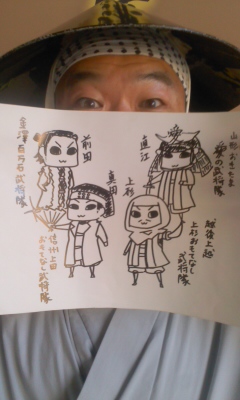 山形おきたま
愛の武将隊
直江
前田
金澤百万石武将隊
真田
上杉
越後上越
上杉おもてなし
武将隊
信州上田
おもてなし武将隊